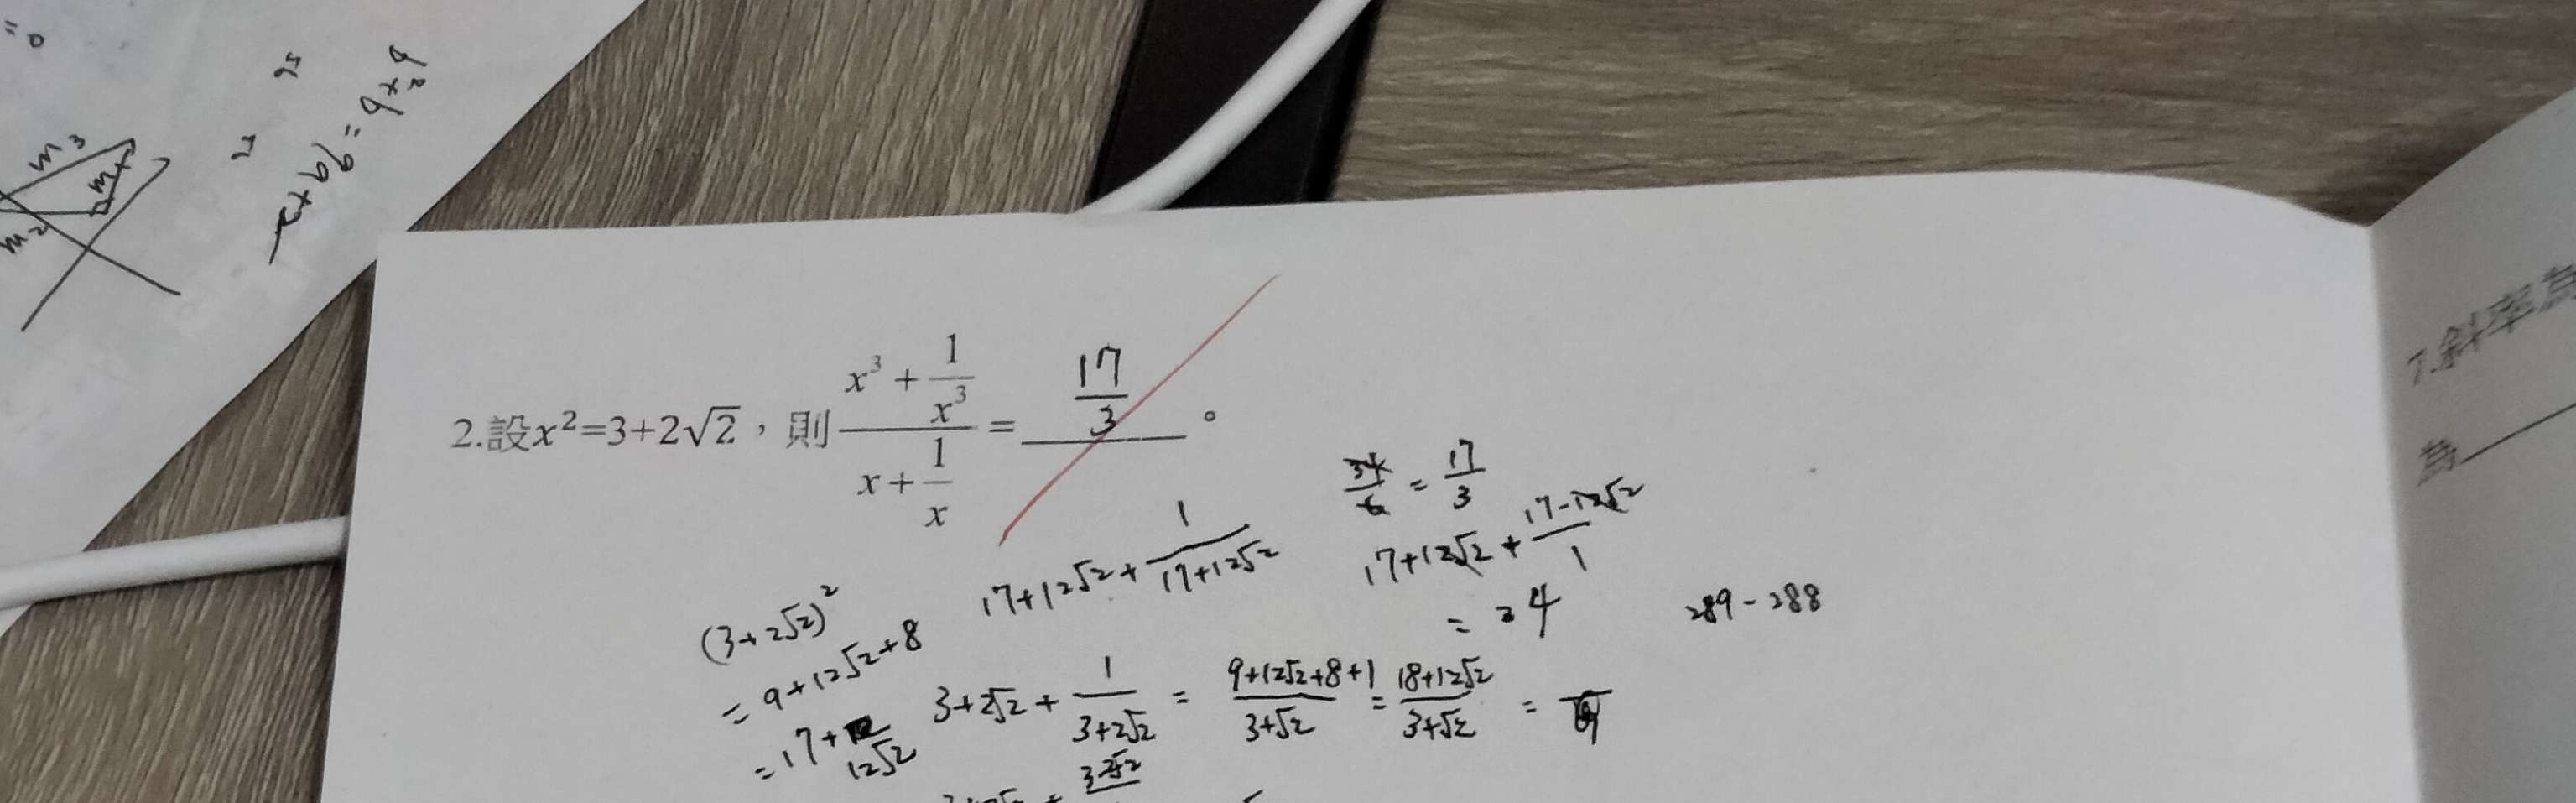 = 0
m₃
m₂
2.設x²=3+2√2，則 (x³ + 1/x³)/(x + 1/x) = 17/3 。
34/6 = 17/3
17+12√2 + 1/(17+12√2)
17+12√2 + (17-12√2)/1
= 34
289-288
(3+2√2)²
= 9+12√2+8
= 17+12√2
3+2√2 + 1/(3+2√2) = (9+12√2+8+1)/(3+√2) = (18+12√2)/(3+√2) =
7.斜率為
為